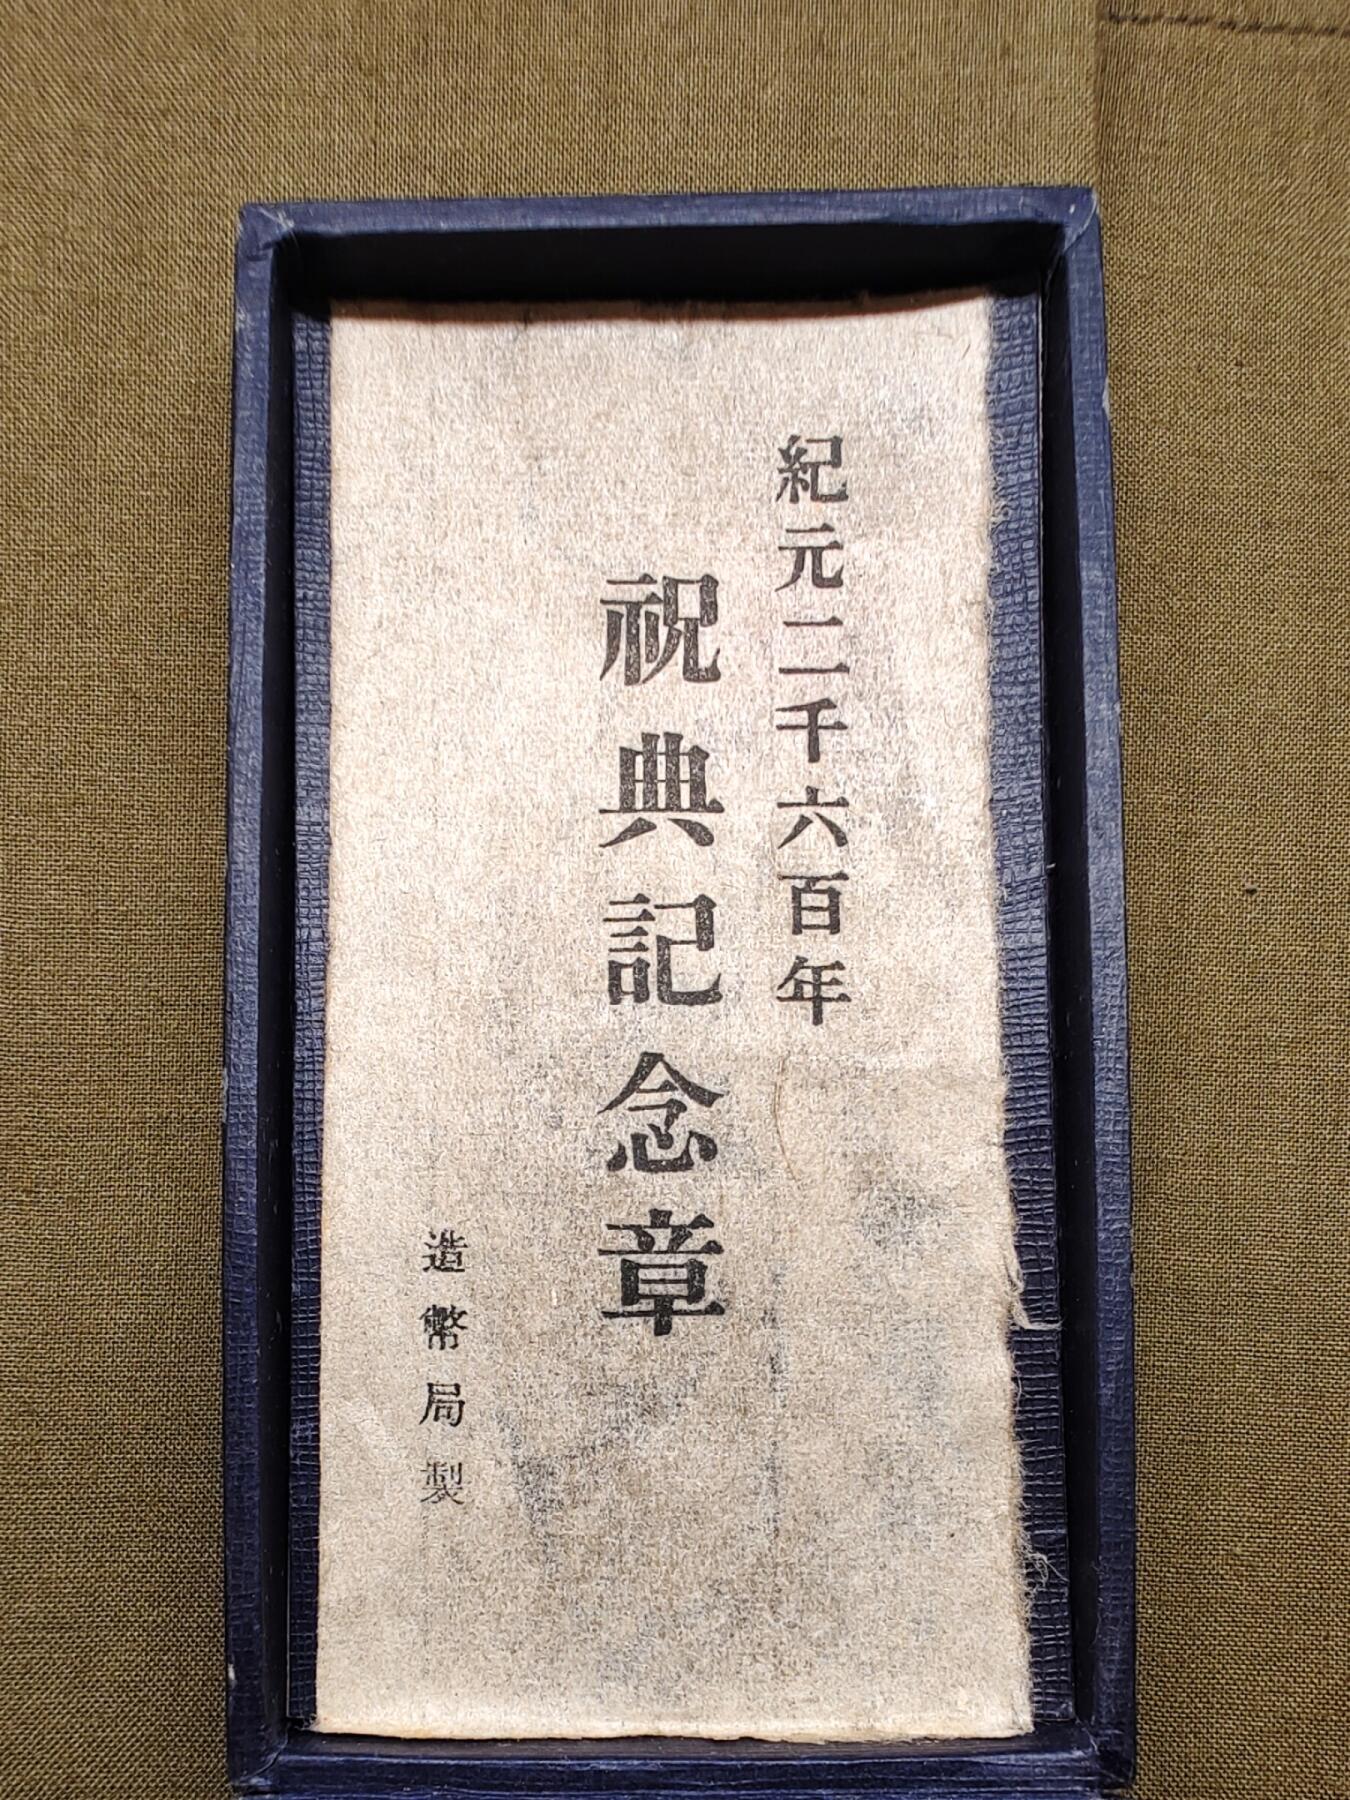 紀元二千六百年
祝典記念章
造幣局製